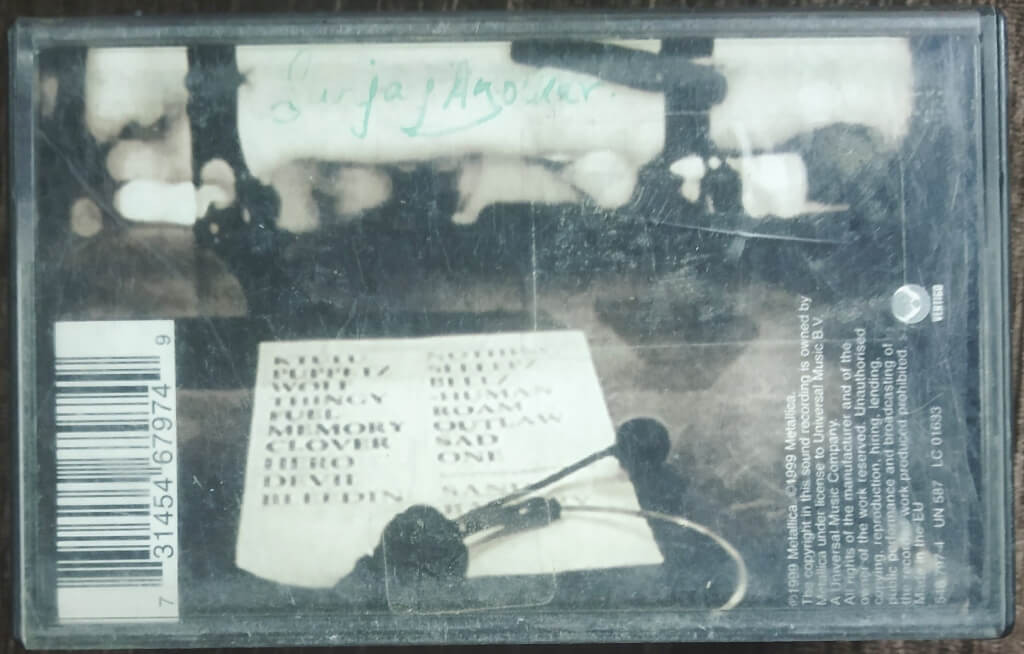 KTULU
PUPPETZ
WOLF
THINGY
FUEL
MEMORY
CLOVER
HERO
DEVIL
BLEEDIN
NOTHING
SLEEPZ
BELLZ
-HUMAN
ROAM
OUTLAW
SAD
ONE
7 31454 67974 9
℗1999 Metallica. ©1999 Metallica.
The copyright in this sound recording is owned by
Metallica under license to Universal Music B.V.
A Universal Music Company.
All rights of the manufacturer and of the
owner of the work reserved. Unauthorised
copying, reproduction, hiring, lending,
public performance and broadcasting of
the recorded work produced prohibited.
Made in the EU
UN 587 LC 01633
VERTIGO